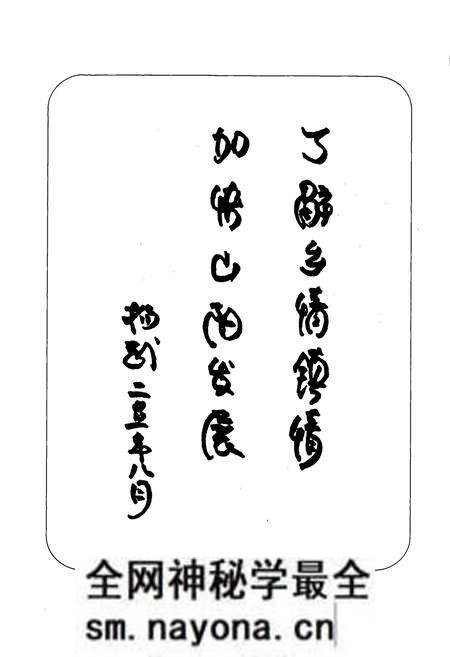 了解乡情镇情
加快山阳发展
二〇〇五年八月
全网神秘学最全
sm.nayona.cn